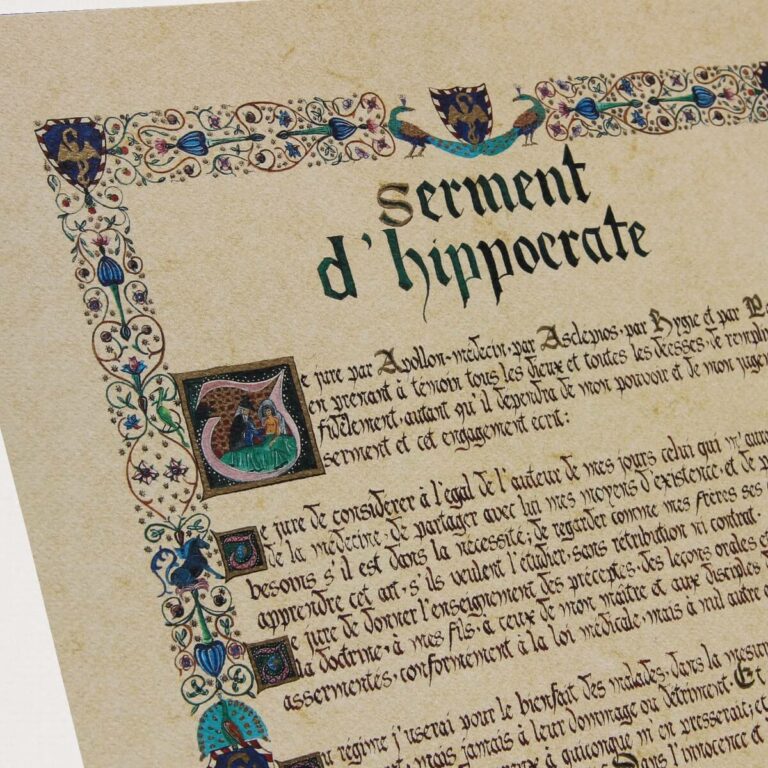 Serment
d'hippocrate
Je jure par Apollon-médecin, par Asclepios, par Hygie et par
en prenant à témoin tous les dieux et toutes les déesses, de remplir
fidèlement, autant qu'il dependra de mon pouvoir et de mon jugem
serment et cet engagement écrit:
Je jure de considerer à l'egal de l'auteur de mes jours celui qui m'aura
de la médecine, de partager avec lui mes moyens d'existence, et de
besoins s'il est dans la nécessité; de regarder comme mes frères ses
apprendre cet art, s'ils veulent l'étudier, sans retribution ni contrat.
Je jure de donner l'enseignement des preceptes, des leçons orales et
la doctrine, à mes fils, à ceux de mon maître et aux disciples
assermentés, conformement à la loi médicale, mais à nul autre
régime j'userai pour le bienfait des malades, dans la mesure
mais jamais à leur dommage ou détriment Et
à quiconque m'en presserait; et
Dans l'innocence et